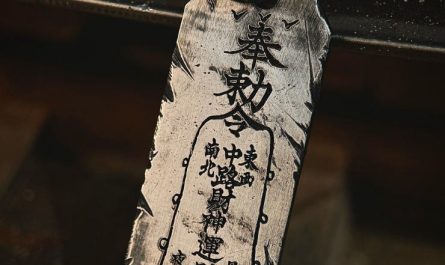 奉
勅
令
東西
中
南北
路
財
神
運